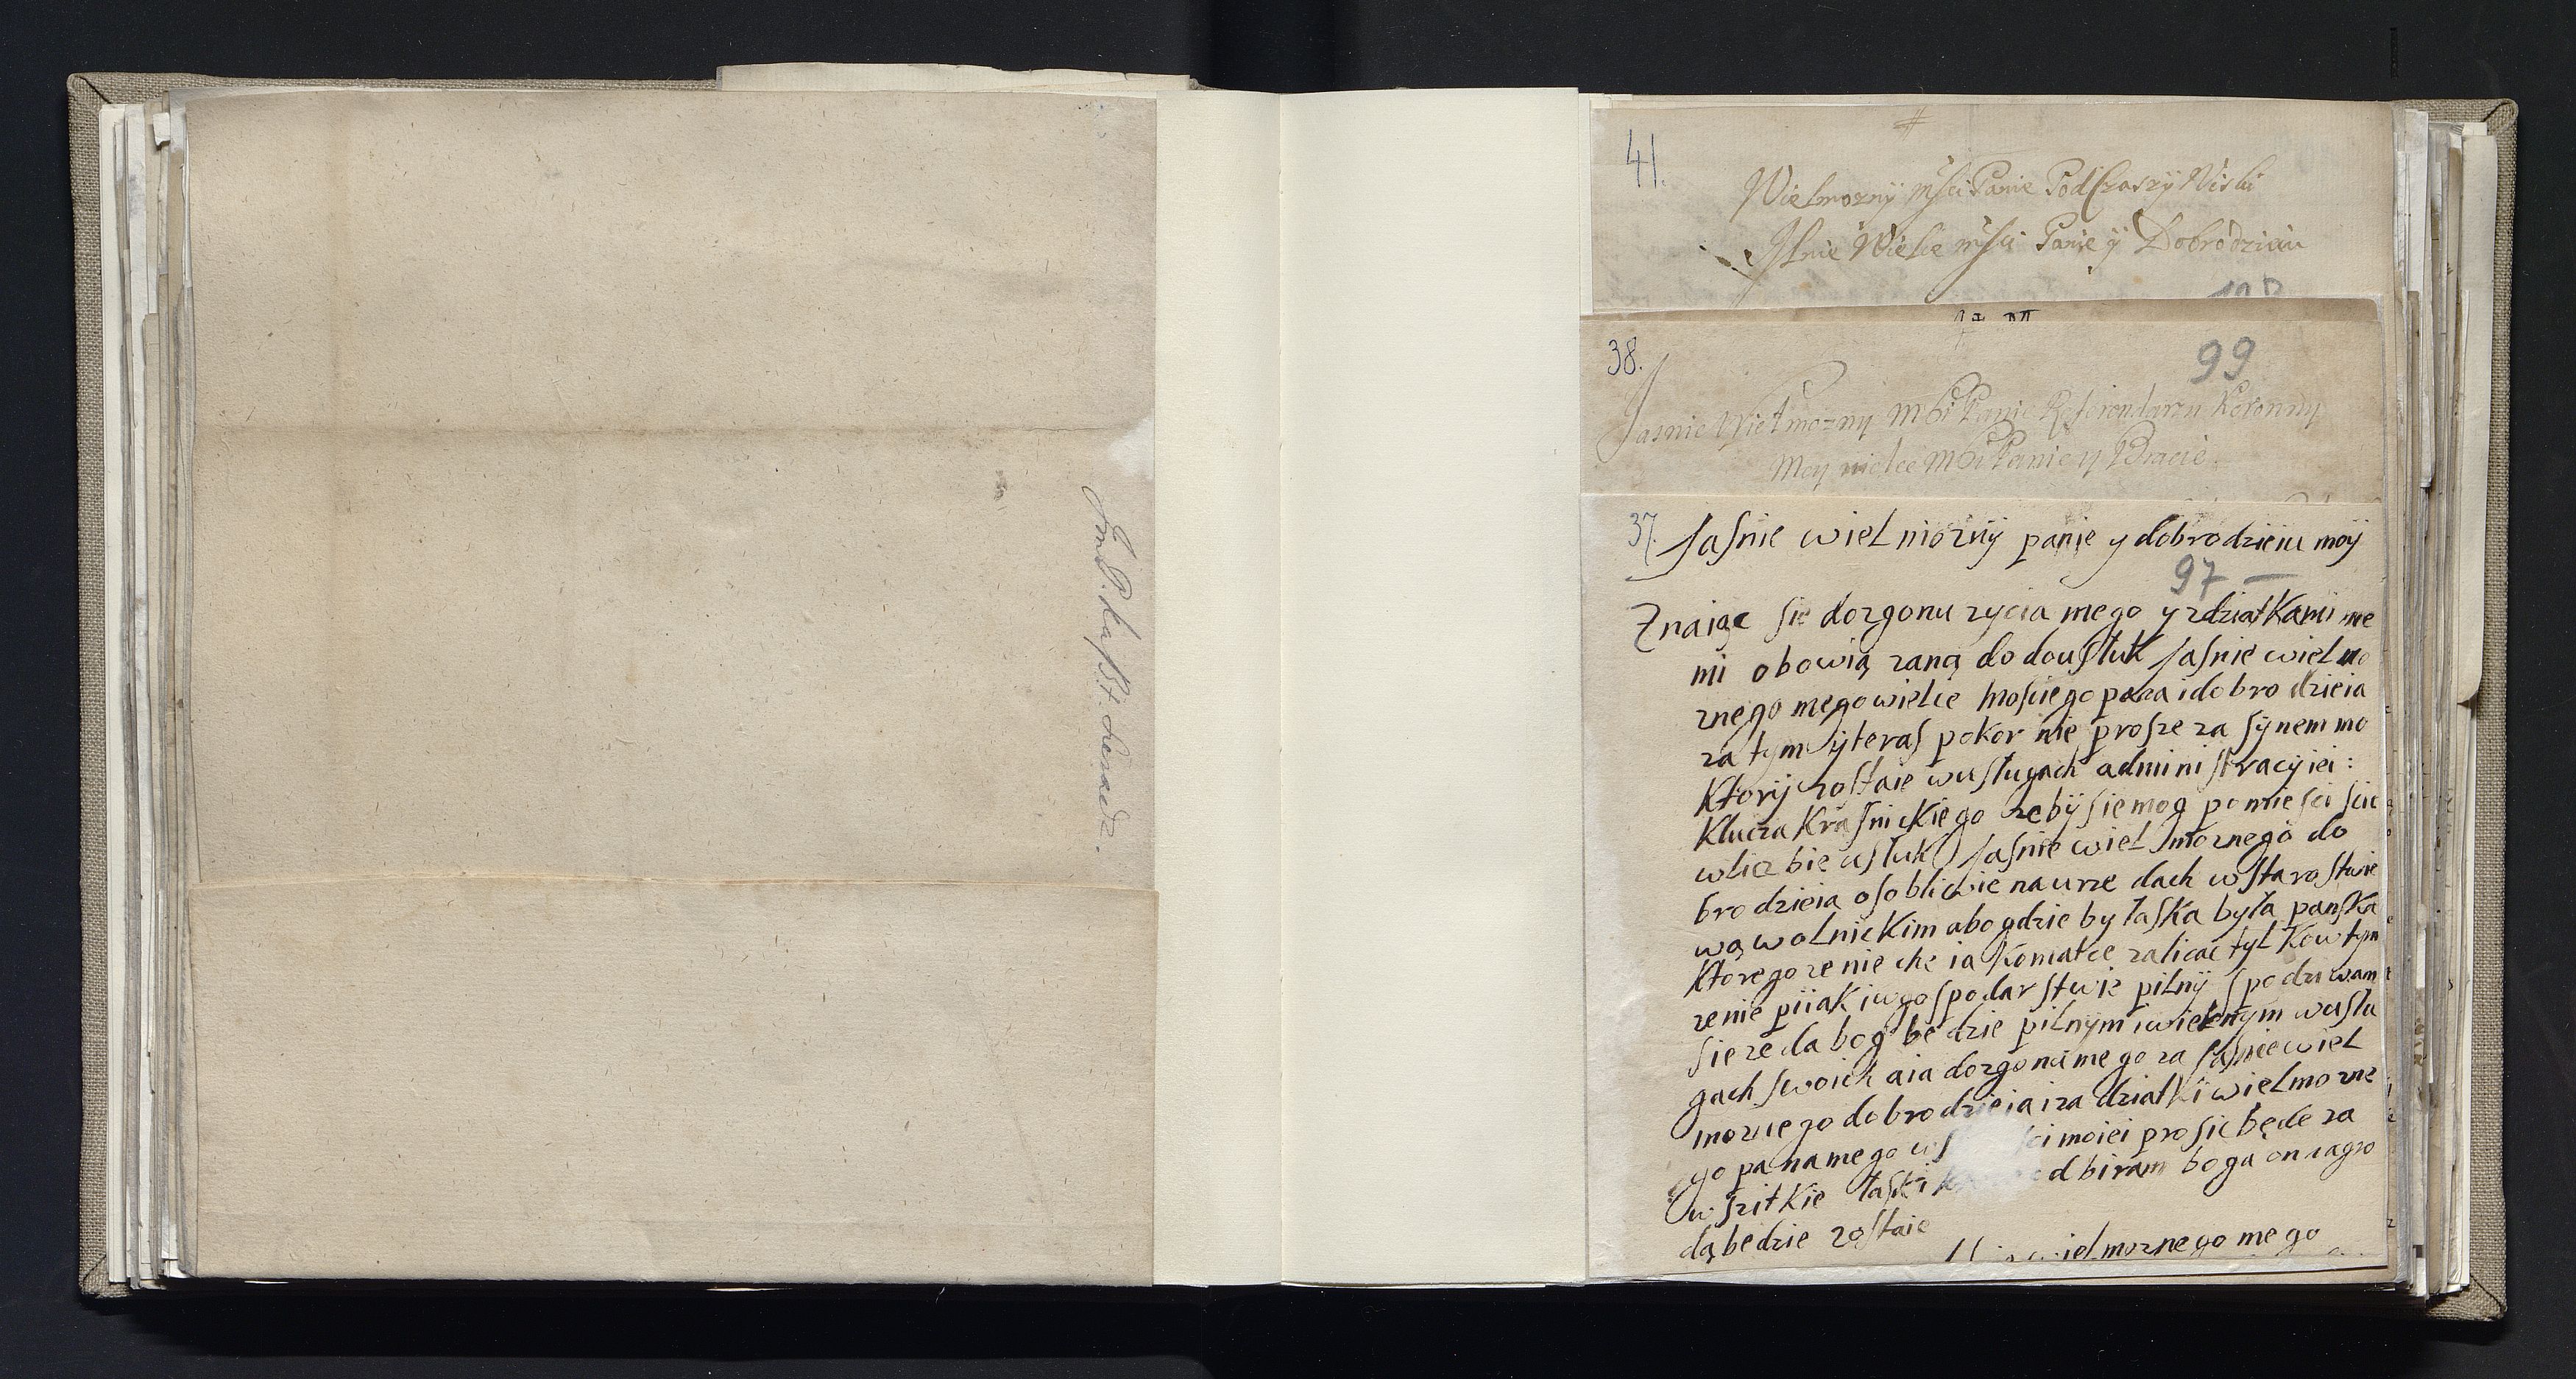 41.
Wielmozny Msci Panie PodCzaszy
Wielce Msci Panie y Dobrodzieiu
99
38.
Jasnie Wielmozny Mści Panie Referendarzu Koronny
Moy wielce Mści Panie y Bracie
37. Jasnie wielmozny panie y dobrodzieiu moy
97
Znaiąc sie dozgonu zycia mego y zdziatkami me
mi obowią zaną do doustuk Jasnie wielmo
znego megowielie mosciego pana idobrodzieia
za tym yteras pokornie prosze za synem mo
Ktory zostaie wusługach administracyiei:
Klucza Krasnickiego zeby siemog pomiescisie
wliczbie usłuk Jasnie wielmoznego do
brodzieia osobliwie naurze dach wstarostwie
wąwolnickim abogdzie by łaska była panska
Ktoregozenie chc iakomatce zalicac tylkowtym
zenie piiak iwgospodarstwie pilny spodziwam
sie zeda bog bedzie pilnym iwiernym wusłu
gach swoich aia dozgonumego za Jasniewiel
moznego dobrodzieia iza dziatki wielmozne
go panamego moiei prosic będe za
wszitkie łaski odbiram boga on nagro
dąbedzie zostaie
wielmoznego mego